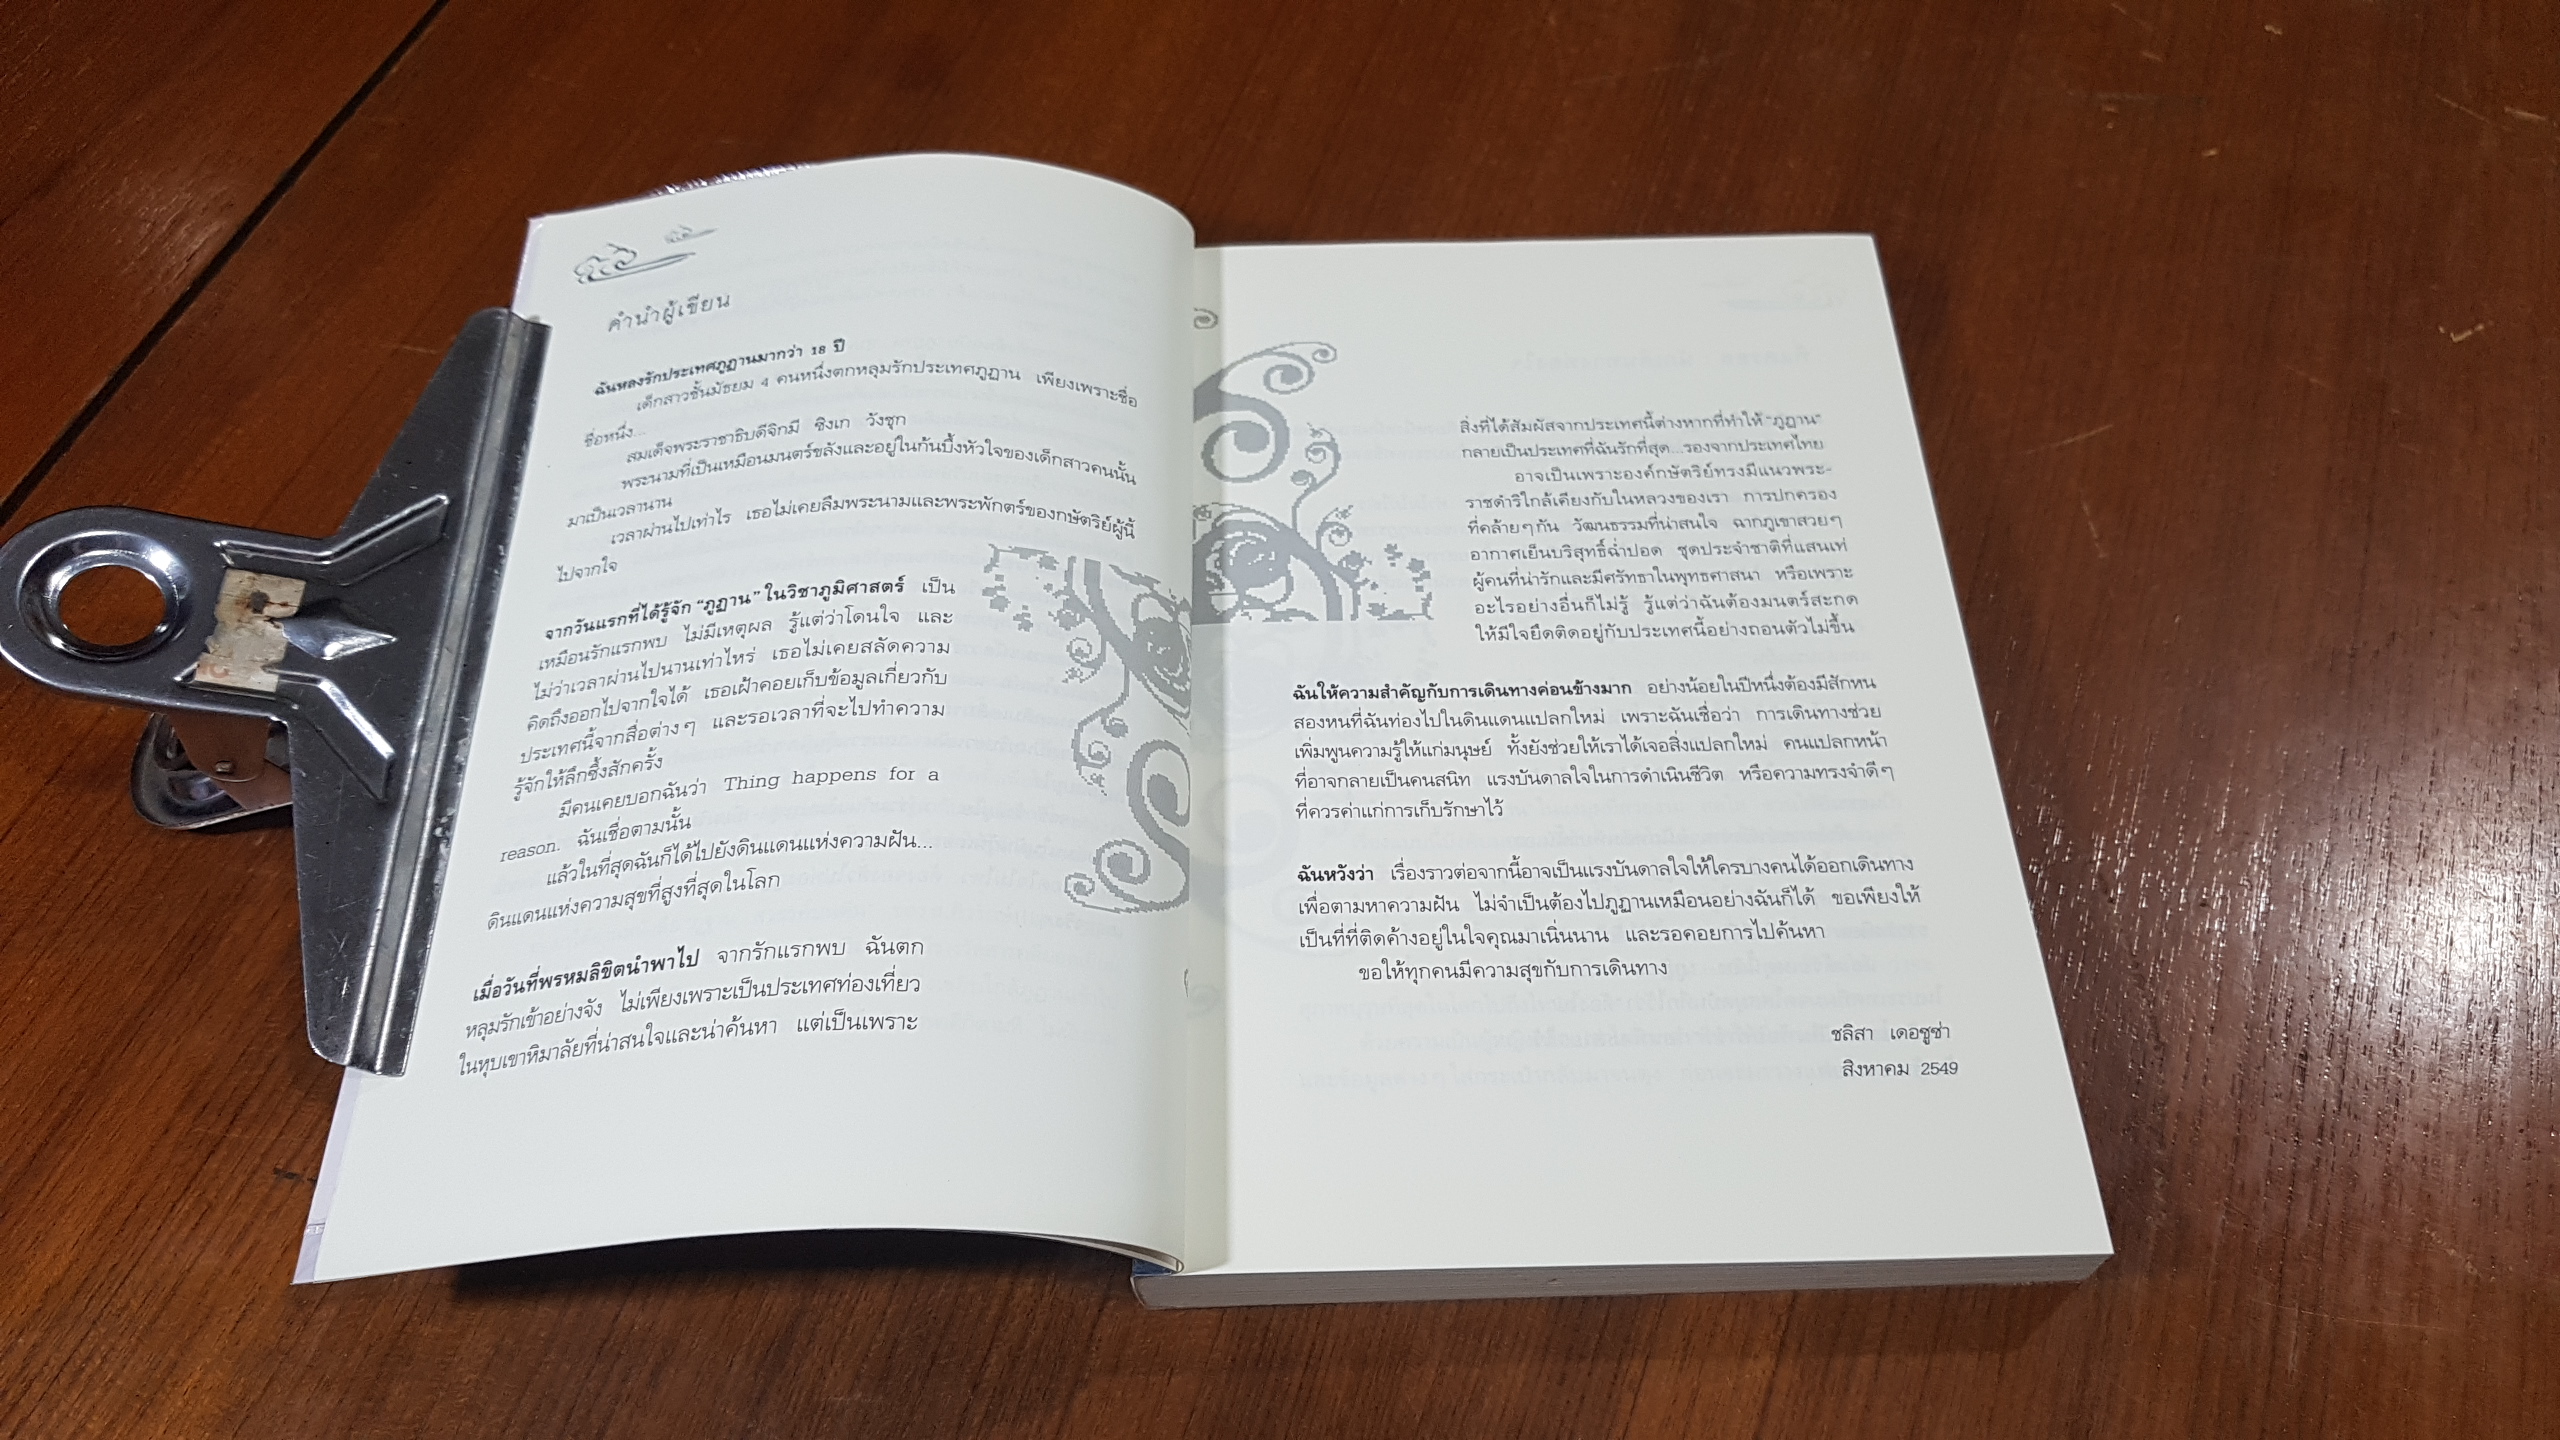 คำนำผู้เขียน
ฉันหลงรักประเทศภูฏานมากว่า 18 ปี
เด็กสาวชั้นมัธยม 4 คนหนึ่งตกหลุมรักประเทศภูฏาน เพียงเพราะชื่อ
ชื่อหนึ่ง...
สมเด็จพระราชาธิบดีจิกมี ซิงเก วังชุก
พระนามที่เป็นเหมือนมนตร์ขลังและอยู่ในก้นบึ้งหัวใจของเด็กสาวคนนั้น
มาเป็นเวลานาน
เวลาผ่านไปเท่าไร เธอไม่เคยลืมพระนามและพระพักตร์ของกษัตริย์ผู้นี้
ไปจากใจ
จากวันแรกที่ได้รู้จัก "ภูฏาน" ในวิชาภูมิศาสตร์ เป็น
เหมือนรักแรกพบ ไม่มีเหตุผล รู้แต่ว่าโดนใจ และ
ไม่ว่าเวลาผ่านไปนานเท่าไหร่ เธอไม่เคยสลัดความ
คิดถึงออกไปจากใจได้ เธอเฝ้าคอยเก็บข้อมูลเกี่ยวกับ
ประเทศนี้จากสื่อต่างๆ และรอเวลาที่จะไปทำความ
รู้จักให้ลึกซึ้งสักครั้ง
มีคนเคยบอกฉันว่า Thing happens for a
reason. ฉันเชื่อตามนั้น
แล้วในที่สุดฉันก็ได้ไปยังดินแดนแห่งความฝัน...
ดินแดนแห่งความสุขที่สูงที่สุดในโลก
เมื่อวันที่พรหมลิขิตนำพาไป จากรักแรกพบ ฉันตก
หลุมรักเข้าอย่างจัง ไม่เพียงเพราะเป็นประเทศท่องเที่ยว
ในหุบเขาหิมาลัยที่น่าสนใจและน่าค้นหา แต่เป็นเพราะ
สิ่งที่ได้สัมผัสจากประเทศนี้ต่างหากที่ทำให้ "ภูฏาน"
กลายเป็นประเทศที่ฉันรักที่สุด...รองจากประเทศไทย
อาจเป็นเพราะองค์กษัตริย์ทรงมีแนวพระ-
ราชดำริใกล้เคียงกับในหลวงของเรา การปกครอง
ที่คล้ายๆกัน วัฒนธรรมที่น่าสนใจ ฉากภูเขาสวยๆ
อากาศเย็นบริสุทธิ์ฉ่ำปอด ชุดประจำชาติที่แสนเท่
ผู้คนที่น่ารักและมีศรัทธาในพุทธศาสนา หรือเพราะ
อะไรอย่างอื่นก็ไม่รู้ รู้แต่ว่าฉันต้องมนตร์สะกด
ให้มีใจยึดติดอยู่กับประเทศนี้อย่างถอนตัวไม่ขึ้น
ฉันให้ความสำคัญกับการเดินทางค่อนข้างมาก อย่างน้อยในปีหนึ่งต้องมีสักหน
สองหนที่ฉันท่องไปในดินแดนแปลกใหม่ เพราะฉันเชื่อว่า การเดินทางช่วย
เพิ่มพูนความรู้ให้แก่มนุษย์ ทั้งยังช่วยให้เราได้เจอสิ่งแปลกใหม่ คนแปลกหน้า
ที่อาจกลายเป็นคนสนิท แรงบันดาลใจในการดำเนินชีวิต หรือความทรงจำดีๆ
ที่ควรค่าแก่การเก็บรักษาไว้
ฉันหวังว่า เรื่องราวต่อจากนี้อาจเป็นแรงบันดาลใจให้ใครบางคนได้ออกเดินทาง
เพื่อตามหาความฝัน ไม่จำเป็นต้องไปภูฏานเหมือนอย่างฉันก็ได้ ขอเพียงให้
เป็นที่ที่ติดค้างอยู่ในใจคุณมาเนิ่นนาน และรอคอยการไปค้นหา
ขอให้ทุกคนมีความสุขกับการเดินทาง
ชลิสา เดอซูซ่า
สิงหาคม 2549